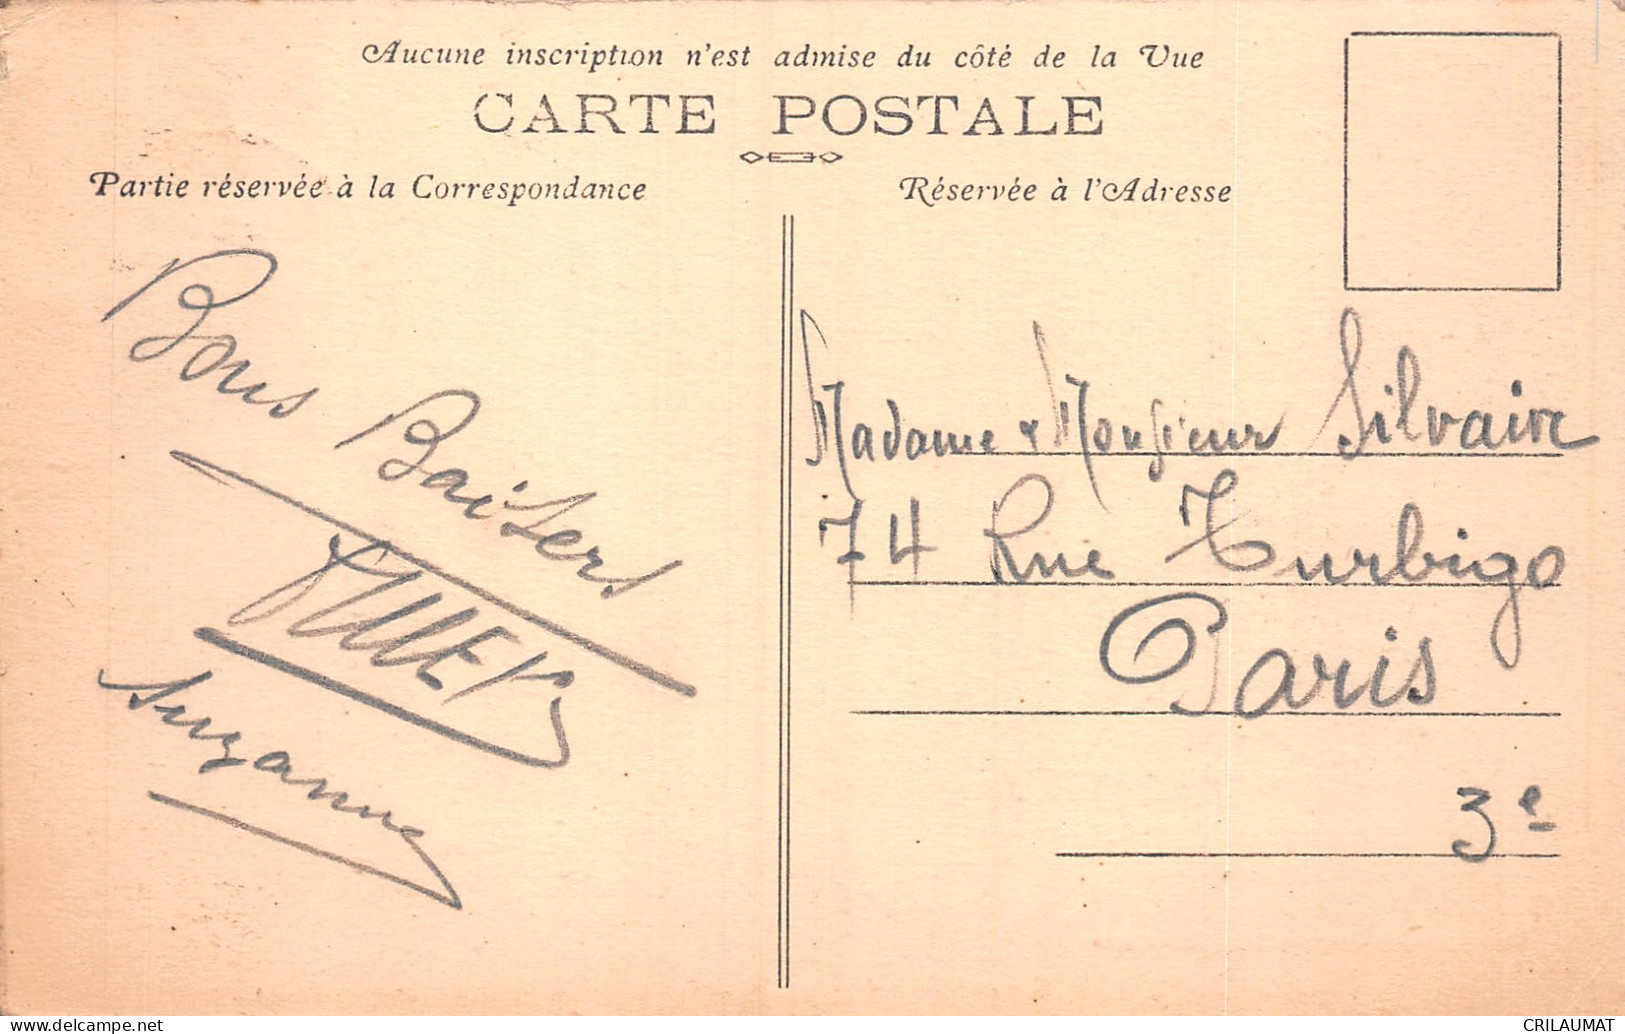 Aucune inscription n'est admise du côté de la Vue
CARTE POSTALE
Partie réservée à la Correspondance
Réservée à l'Adresse
Bons Baisers
Suzanne
Madame & Monsieur Silvaire
74 Rue Turbigo
Paris
3e
CRILAUMAT